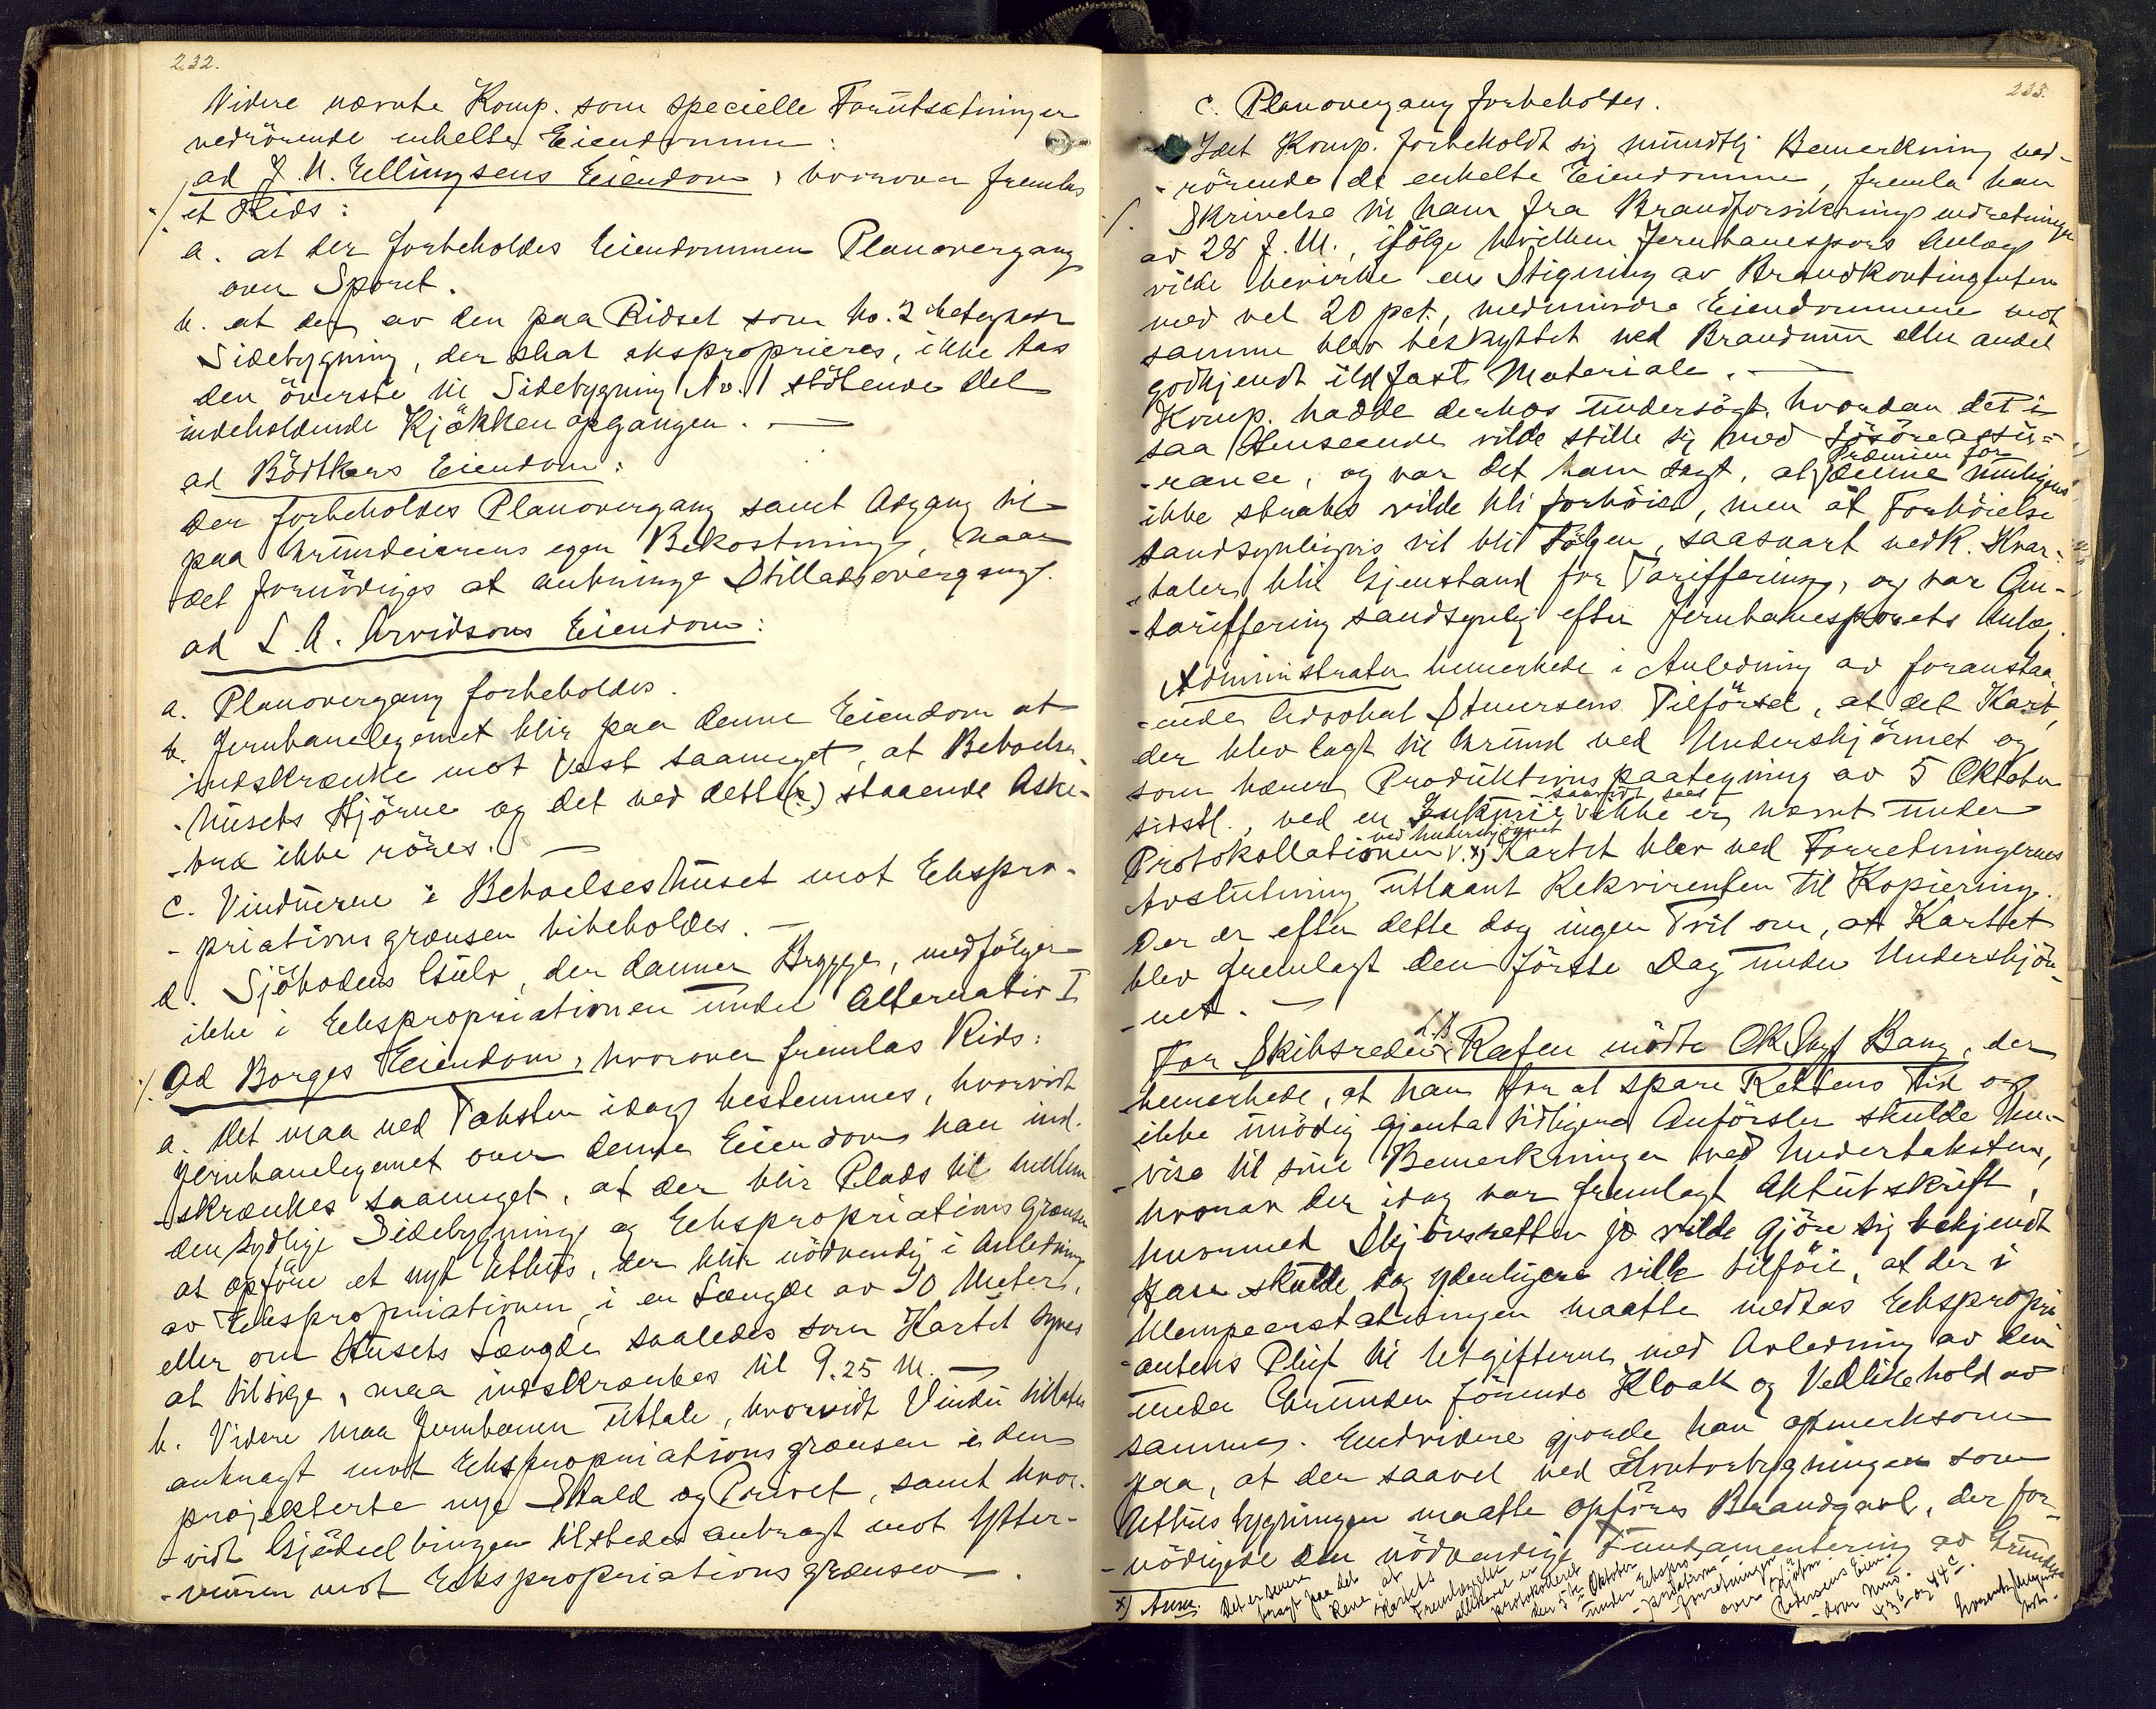 232.
Videre nævnte Komp. som specielle Forutsætninger
vedrörende enkelte Eiendomme:
ad J. M. Ellingsens Eiendom, hvorover fremlas
./. et Rids:
a. at der forbeholdes Eiendommen Planovergang
over Sporet.
b. at der av den paa Ridset som No. 2 betegnede
Sidebygning, der skal eksproprieres, ikke tas
den överste til Sidebygning No. 1 stötende Del
indeholdende Kjökkenopgangen. —
ad Bödtkers Eiendom:
der forbeholdes Planovergang samt Adgang til
paa Grundeierens egen Bekostning, naar
det fornödiges at anbringe Stilladsovergang.
ad L. A. Arvidsons Eiendom:
a. Planovergang forbeholdes.
b. Jernbanelegemet blir paa denne Eiendom at
indskrænke mot Vest saameget, at Beboelses-
-husets Hjörne og det ved dette (?) staaende Aske-
-træ ikke röres. —
c. Vinduerne i Beboelseshuset mot Ekspro-
-priationsgrænsen bibeholdes. —
d. Sjöbodens Gulv, der danner Brygge, medfölger
ikke i Ekspropriationen under Alternativ I
./. Ad Borges Eiendom, hvorover fremlas Rids:
a. Det maa ved Taksten idag bestemmes, hvorvidt
Jernbanelegemet over denne Eiendom kan ind-
-skrænkes saameget, at der blir Plads til mellem
den sydlige Sidebygning og Ekspropriationsgrænsen
at opföre et nyt Uthus, der blir nödvendig i Anledning
av Ekspropriationen, i en Længde av 10 Meter,
eller om Husets Længde saaledes som Kartet synes
at tilsige, maa indskrænkes til 9.25 M. —
b. Videre maa Jernbanen uttale, hvorvidt Vindu tillates
anbragt mot Ekspropriationsgrænsen i den
projekterte nye Stald og Privet, samt hvor-
-vidt Gjödselbingen tilstedes anbragt mot Ytter-
-muren mot Ekspropriationsgrænsen.
233.
c. Planovergang forbeholdes.
Idet Komp. forbeholdt sig mundtlig Bemerkning ved-
-rörende de enkelte Eiendomme, fremla han
./. Skrivelse til ham fra Brandforsikringsindretningen
av 28 f. M., ifölge hvilken Jernbanespors Anlæg
vilde bevirke en Stigning av Brandkontingenten
med vel 20 pct., medmindre Eiendommene mot
samme blev beskyttet ved Brandmur eller andet
godkjendt ildfast Materiale. —
Komp. hadde derhos undersögt, hvordan det i
saa Henseende vilde stille sig med Lösöreassu-
-rance, og var det ham sagt, at Præmien for denne muligens
ikke straks vilde bli forhöiet, men at Forhöielse
sandsynligvis vil bli Fölgen, saasnart vedk. Kvar-
-taler blir Gjenstand for Tariffering, og var Om-
-tariffering sandsynlig efter Jernbanesporets Anlæg.
Administrator bemerkede i Anledning av foranstaa-
-ende Advokat Stenersens Tilförsel, at det Kart,
der blev lagt til Grund ved Underskjönnet og
som bærer Produktionspaategning av 5 Oktober
sidstl., ved en Inkurie saavidt sees ikke er nævnt under
Protokollationen ved Underskjönnet x) Kartet blev ved Forretningernes
Avslutning utlaant Rekvirenten til Kopiering.
Der er efter dette dog ingen Tvil om, at Kartet
blev fremlagt den förste Dag under Underskjön-
-net. —
For Skibsreder L. B. Rafen mödte OKSagf Bang, der
bemerkede, at han for at spare Rettens Tid og
ikke unödig gjenta tidligere Anförsler skulde hen-
-vise til sine Bemerkninger ved Undertaksten,
hvorav der idag var fremlagt Aktutskrift,
hvormed Skjönsretten jo vilde gjöre sig bekjendt
Han skulde dog yderligere ville tilföie, at der i
Ulempeerstatningen maatte medtas Ekspropri-
-antens Pligt til Utgifterne med Avledning av den
under Grunden förende Kloak og Vedlikehold av
samme. Endvidere gjorde han opmerksom
paa, at der saavel ved Kontorbygningen som
Uthusbygningen maatte opföres Brandgavl, der for-
-nödigede den nödvendige Fundamentering av Grunden
x) Anm. Det er senere
bragt paa det
Rene, at
Kartets
Fremlæggelse
allikevel er
protokolleret
den 5te Oktober
under Ekspro-
-priations-
-forretningen
over Hjalmar
Eien-
-dom No.
43b og 44c.